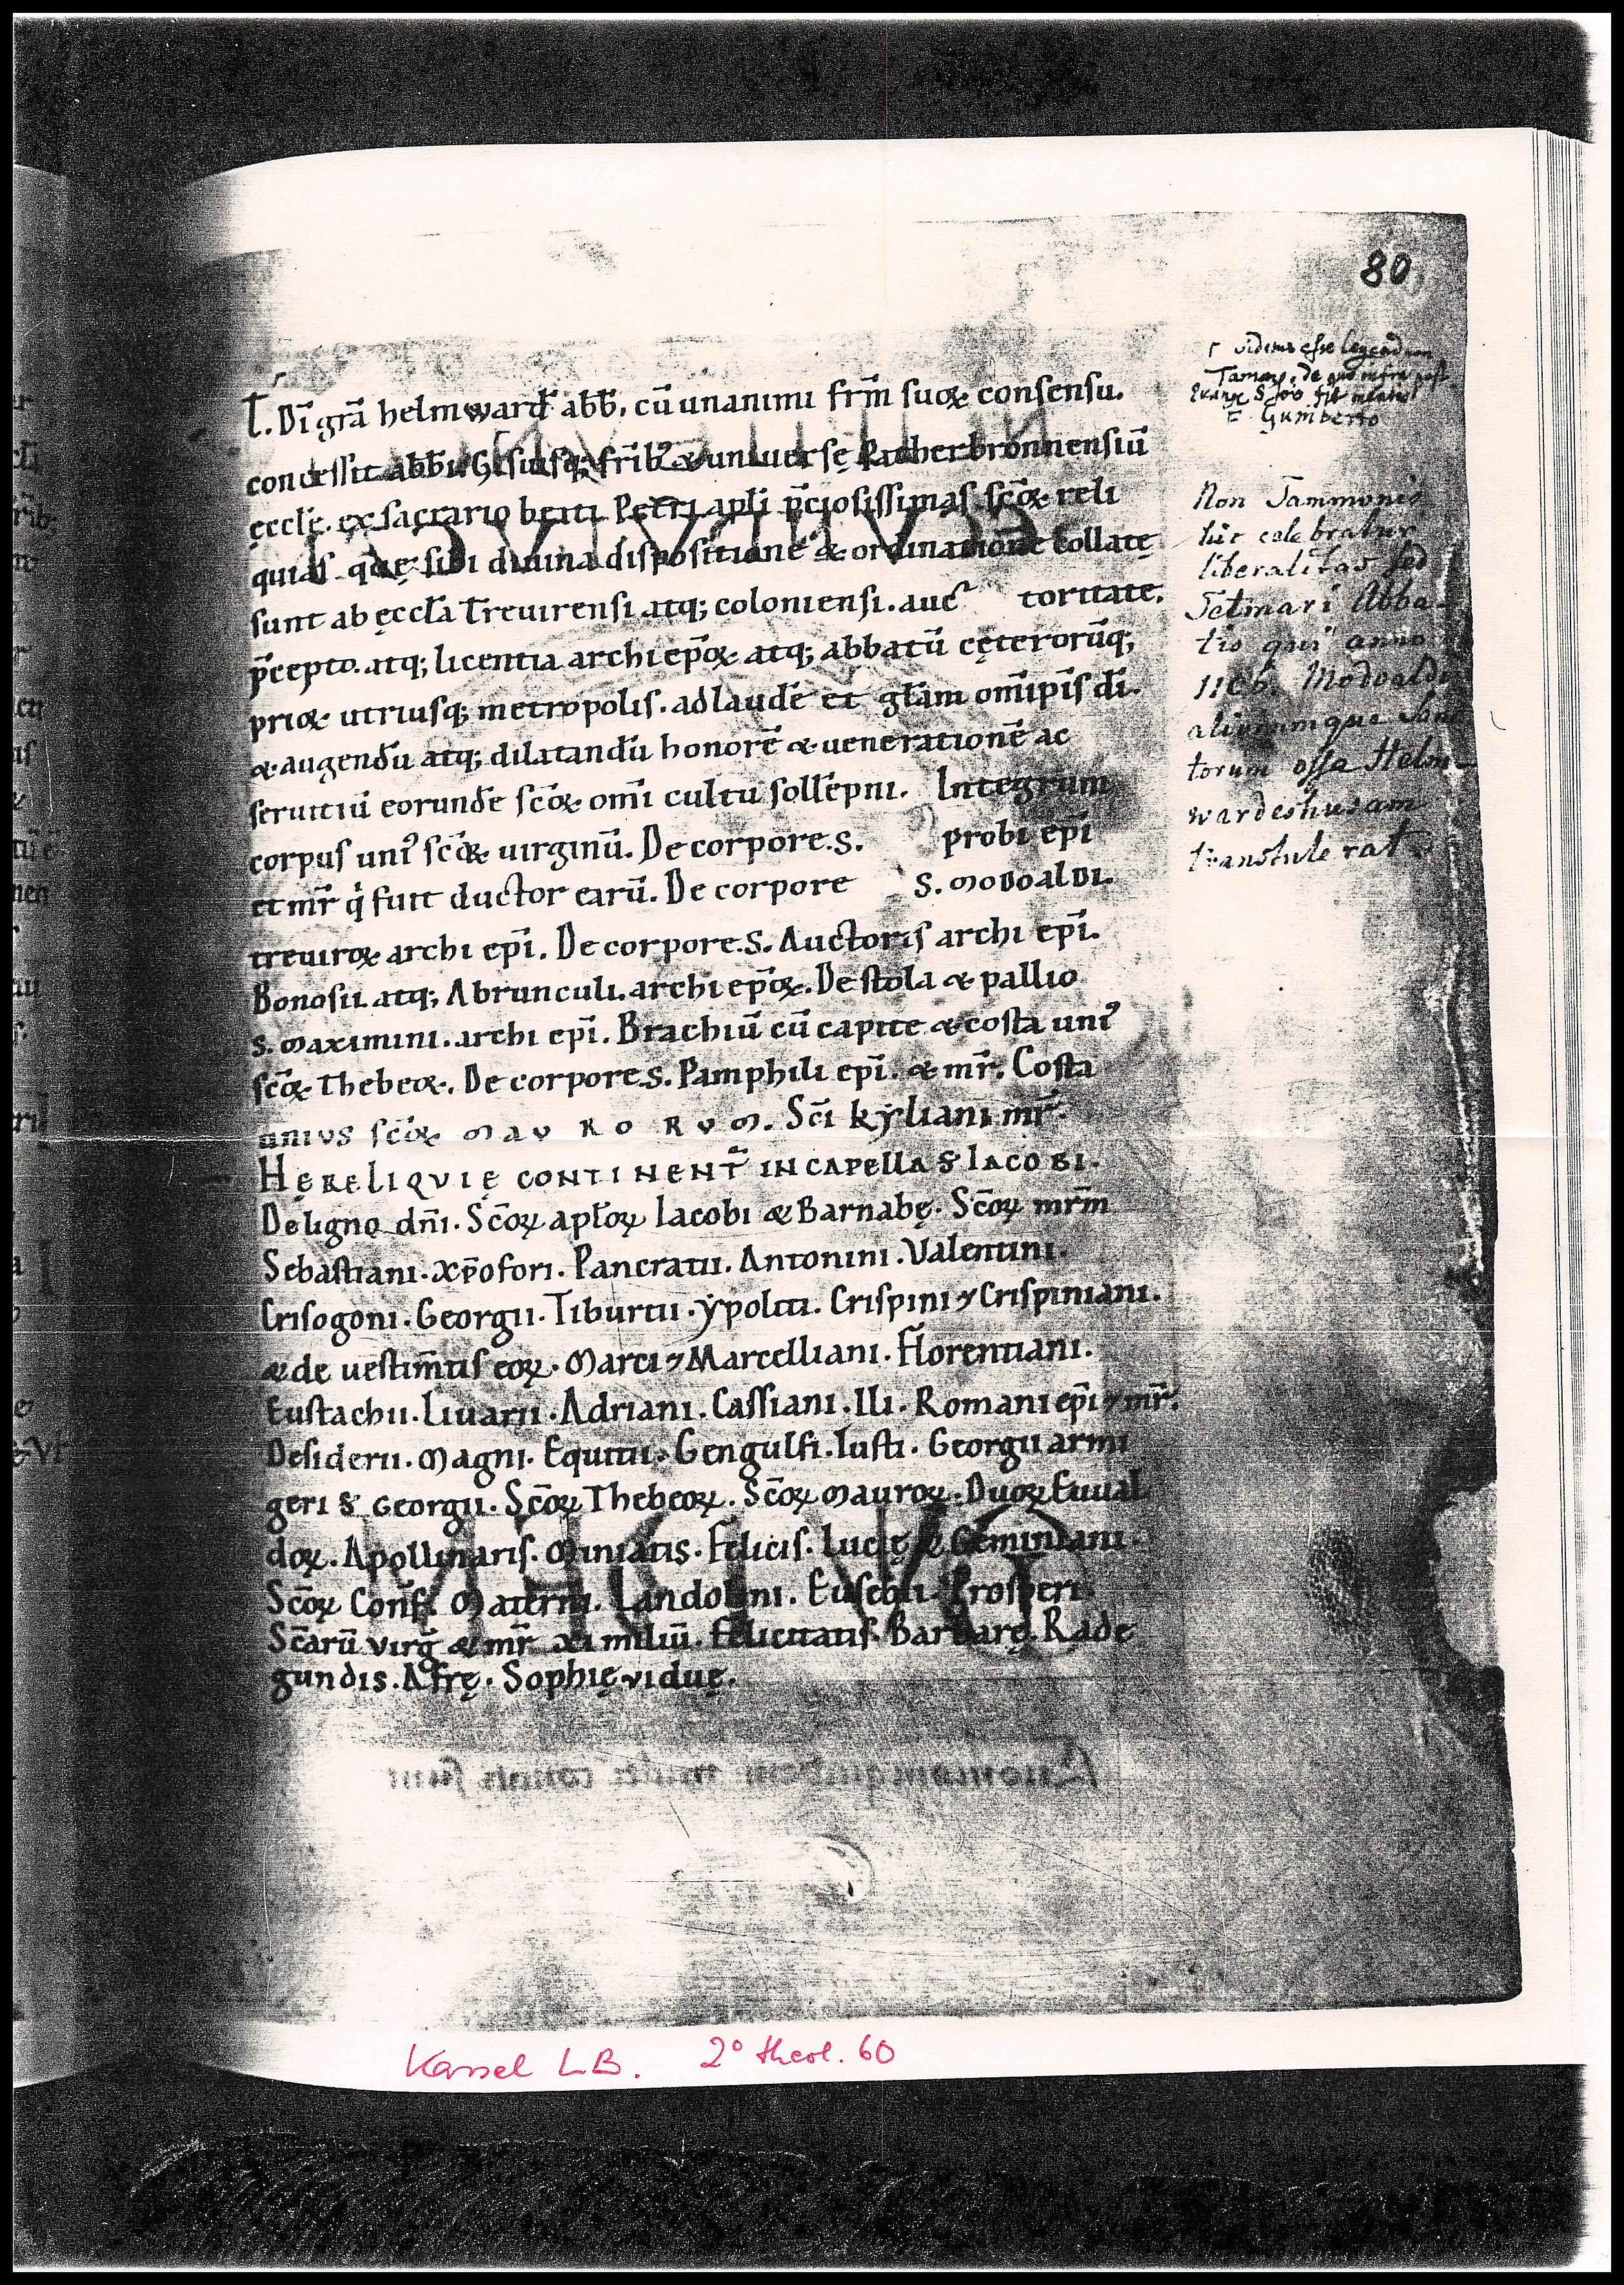 80
T. Dī grā helmward̄ abb̄. cū unanimi fr̄m suoꝝ consensu.
concessit abb̄i Gisiusq; fr̄ib; & uniuersę Patherbronnensiū
ęccłę. ex sacrario beati Petri apłi p̄ciosissimas sc̄oꝝ reli
quias quę sibi diuina dispositione & ordinatione collatę
sunt ab ęccła Treuirensi atq; coloniensi. auc toritate.
p̄cepto. atq; licentia archiep̄oꝝ atq; abbatū cęterorūq;
prioꝝ utriusq; metropolis. ad laudē et głam om̄ip̄is dī.
& augendū atq; dilatandū honorē & uenerationē ac
seruitiū eorundē sc̄oꝝ om̄i cultu sollēpni. Integrum
corpus uni᾽ sc̄aꝝ uirginū. De corpore. S. probi ep̄i
et mr̄ q̇ fuit ductor earū. De corpore S. MODOALDI.
treuiroꝝ archi ep̄i. De corpore. S. Auctoris archi ep̄i.
Bonosii. atq; Abrunculi. archi ep̄oꝝ. De stola & pallio
S. Maximini. archi ep̄i. Brachiū cū capite & costa uni᾽
sc̄oꝝ Thebeoꝝ. De corpore. S. Pamphili ep̄i. & mr̄. Costa
unius sc̄oꝝ MAURORUM. Sc̄i kẏliani mr̄.
HĘ RELIQUIĘ CONTINENT̄ IN CAPELLA S IACOBI.
De ligno dn̄i. Sc̄oꝝ apłoꝝ Iacobi & Barnabę. Sc̄oꝝ mr̄m
Sebastiani. xp̄ofori. Pancratii. Antonini. Valentini.
Crisogoni. Georgii. Tiburtii. ẏpoliti. Crispini ⁊ Crispiniani.
& de uestim̄tis eoꝝ. Marci ⁊ Marcelliani. Florentiani.
Eustachii. Liuarii. Adriani. Cassiani. Ili. Romani ep̄i ⁊ mr̄.
Desiderii. Magni. Equitii. Gengulfi. Iusti. Georgii armi
geri S Georgii. Sc̄oꝝ Thebeoꝝ. Sc̄oꝝ Mauroꝝ. Duoꝝ Euual
doꝝ. Apollinaris. Miniatis. Felicis. Lucię & Geminiani.
Sc̄oꝝ Conf̄. Materni. Landolini. Eusebii. Prosperi.
Sc̄arū virg̅ & mr̄ xi miliū. Felicitatis. Barbarę. Rade
gundis. Afrę. Sophię viduę.
videtur esse legendum
Gumberto
Non Tammonis
hic celebratur
liberalitas sed
Tetmari Abba-
tis qui anno
Modoaldi
aliorumque Sanc
torum ossa Helm-
wardeshusam
transtulerat
Kassel LB. 2° theol. 60